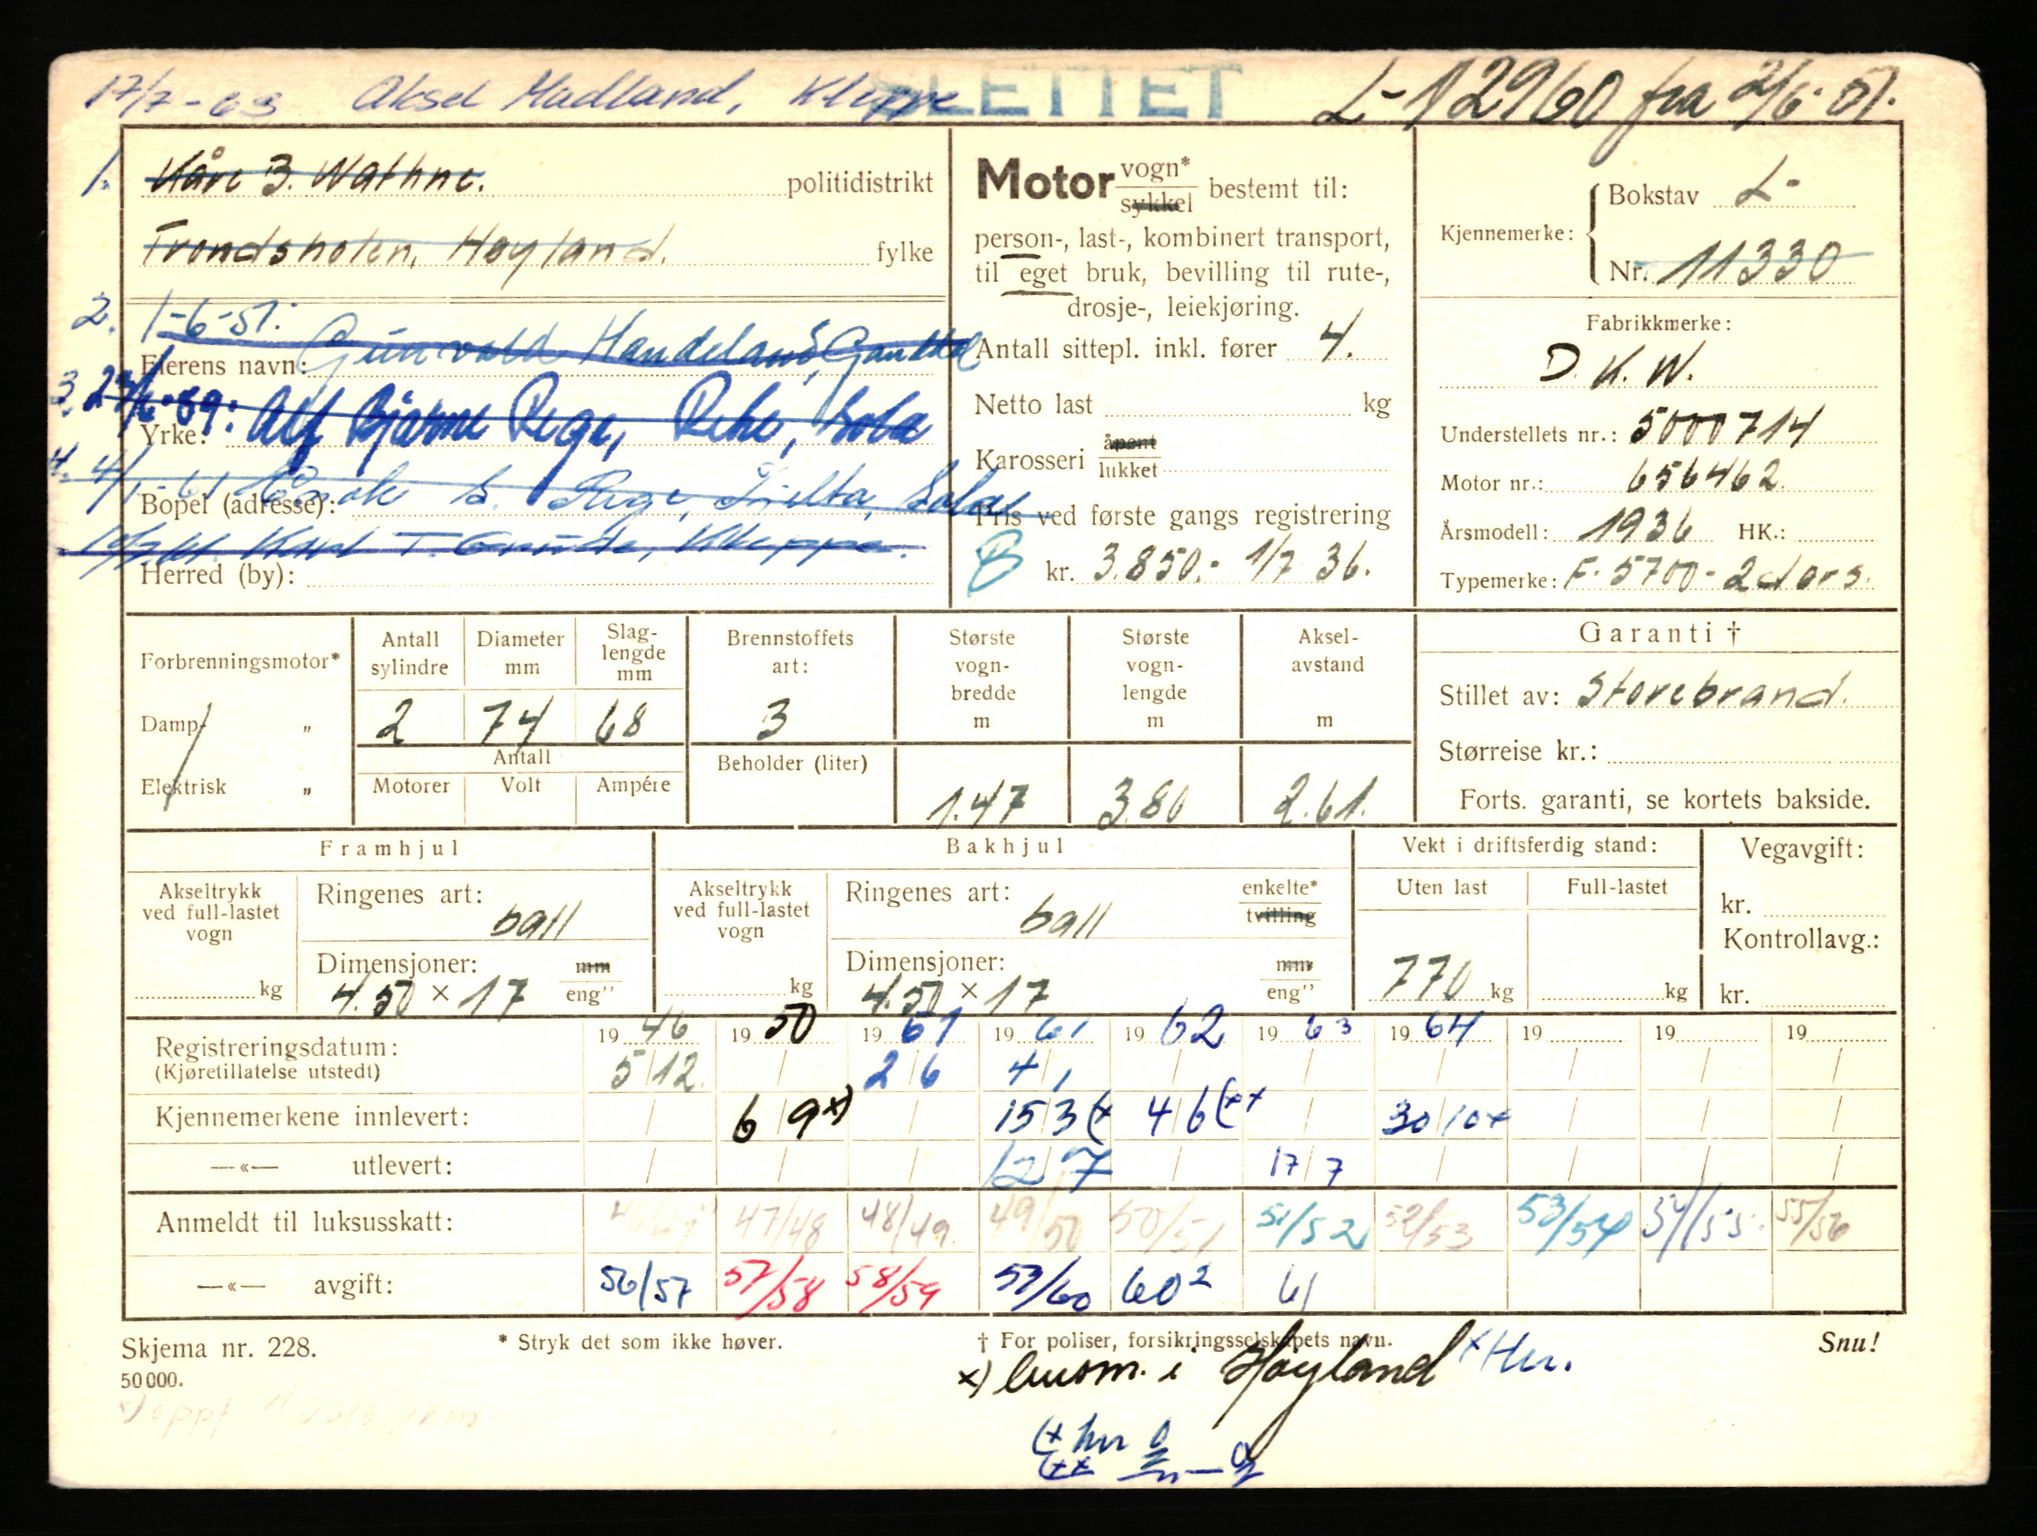 17/7-63 Aksel Madland, Kleppe
SLETTET
L-12960 fra 2/6-51.
1. Kåre B. Wathne. politidistrikt
Trondsholen, Høyland. fylke
2. 1-6-51. Gunvald Handeland, Ganddal
Eierens navn:
3. Yrke: Alf Bjarne Rege, Reke, Sola
4. 4/1-61 S. Rege, Sola
Bopel (adresse):
Karl T. Grude, Kleppe.
Herred (by):
Motor vogn* sykkel bestemt til:
person-, last-, kombinert transport,
til eget bruk, bevilling til rute-,
drosje-, leiekjøring.
Antall sittepl. inkl. fører 4.
Netto last kg
Karosseri åpent lukket
Pris ved første gangs registrering
B kr. 3.850,- 1/7 36.
Kjennemerke: Bokstav L-
Nr. 11330
Fabrikkmerke:
D.K.W.
Understellets nr.: 5000714
Motor nr.: 656462
Årsmodell: 1936 HK.:
Typemerke: F. 5700- 2 dørs.
Forbrenningsmotor*
Damp- „
Elektrisk „
Antall sylindre 2
Diameter mm 74
Slaglengde mm 68
Antall
Motorer Volt Ampére
Brennstoffets art: 3
Beholder (liter)
Største vognbredde m 1.47
Største vognlengde m 3.80
Akselavstand m 2.61.
Garanti †
Stillet av: Storebrand.
Størreise kr.:
Forts. garanti, se kortets bakside.
Framhjul
Akseltrykk ved full-lastet vogn kg
Ringenes art: ball
Dimensjoner: 4.50 × 17 mm eng"
Bakhjul
Akseltrykk ved full-lastet vogn kg
Ringenes art: ball enkelte* tvilling
Dimensjoner: 4.50 × 17 mm eng"
Vekt i driftsferdig stand:
Uten last Full-lastet
770 kg kg
Vegavgift:
kr.
Kontrollavg.:
kr.
1946 1950 1961 1962 1963 1964 19 19 19
Registreringsdatum: 5/12 2/6 4/1
(Kjøretillatelse utstedt)
Kjennemerkene innlevert: 6/9 x) 15/3 (x 4/6 (xx 30/10 x
—«— utlevert: 12/7 17/7
Anmeldt til luksusskatt: 47/48 48/49 49/50 50/51 51/52 52/53 53/54 54/55 55/56
—«— avgift: 56/57 57/58 58/59 59/60 60² 61
Skjema nr. 228.
50000.
* Stryk det som ikke høver.
† For poliser, forsikringsselskapets navn.
Snu!
x) i Høyland x Hu.